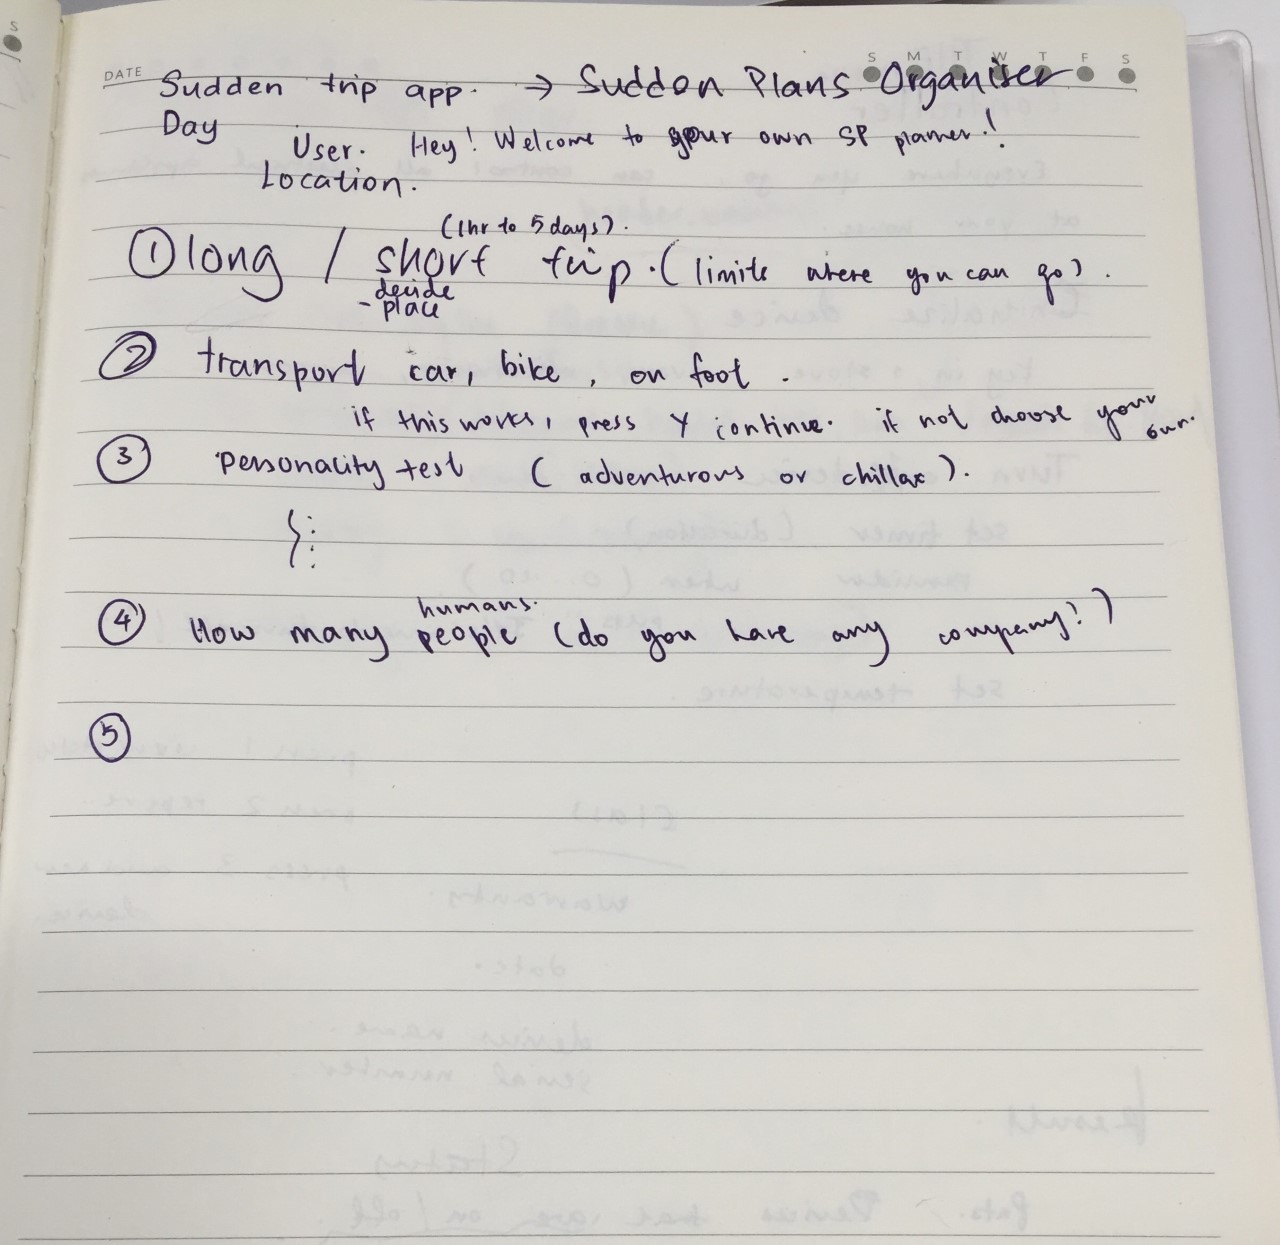 S
DATE
S M T W T F S
Sudden trip app. → Sudden Plans Organiser
Day
User. Hey! Welcome to your own SP planner!
Location.
(1hr to 5 days).
① long / short trip. (limits where you can go).
- decide place
② transport car, bike, on foot.
if this works, press Y continue. if not choose your own.
③ Personality test (adventurous or chillax).
④ How many people (do you have any company?)
humans.
⑤